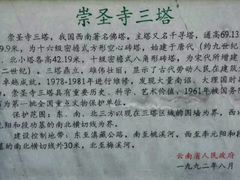 崇圣寺三塔
崇圣寺三塔,我国西南著名佛塔。主塔又名千寻塔,通高69.13
9.9米,为十六级密檐式方形空心砖塔,始建于唐代(约九世纪
、北小塔各高42.19米,十级密檐式八角形砖塔,为宋代所建
二世纪)。三塔鼎立,雄伟壮观,显示了古代劳动人民在建筑
成就。1978-1981年进行维修,发现大量南诏、大理国时
崇圣寺三塔具有重要历史、科学、艺术价值,1961年被国务
为第一批全国重点文物保护单位。
保护范围:东、南、北三方以三塔
30米的南北横切线为界。
建设控制地带:东至滇藏公路,南至桃溪河,西至
的南北横切线外30米,北至梅溪河。
云南省人民政府
一九九二年八月